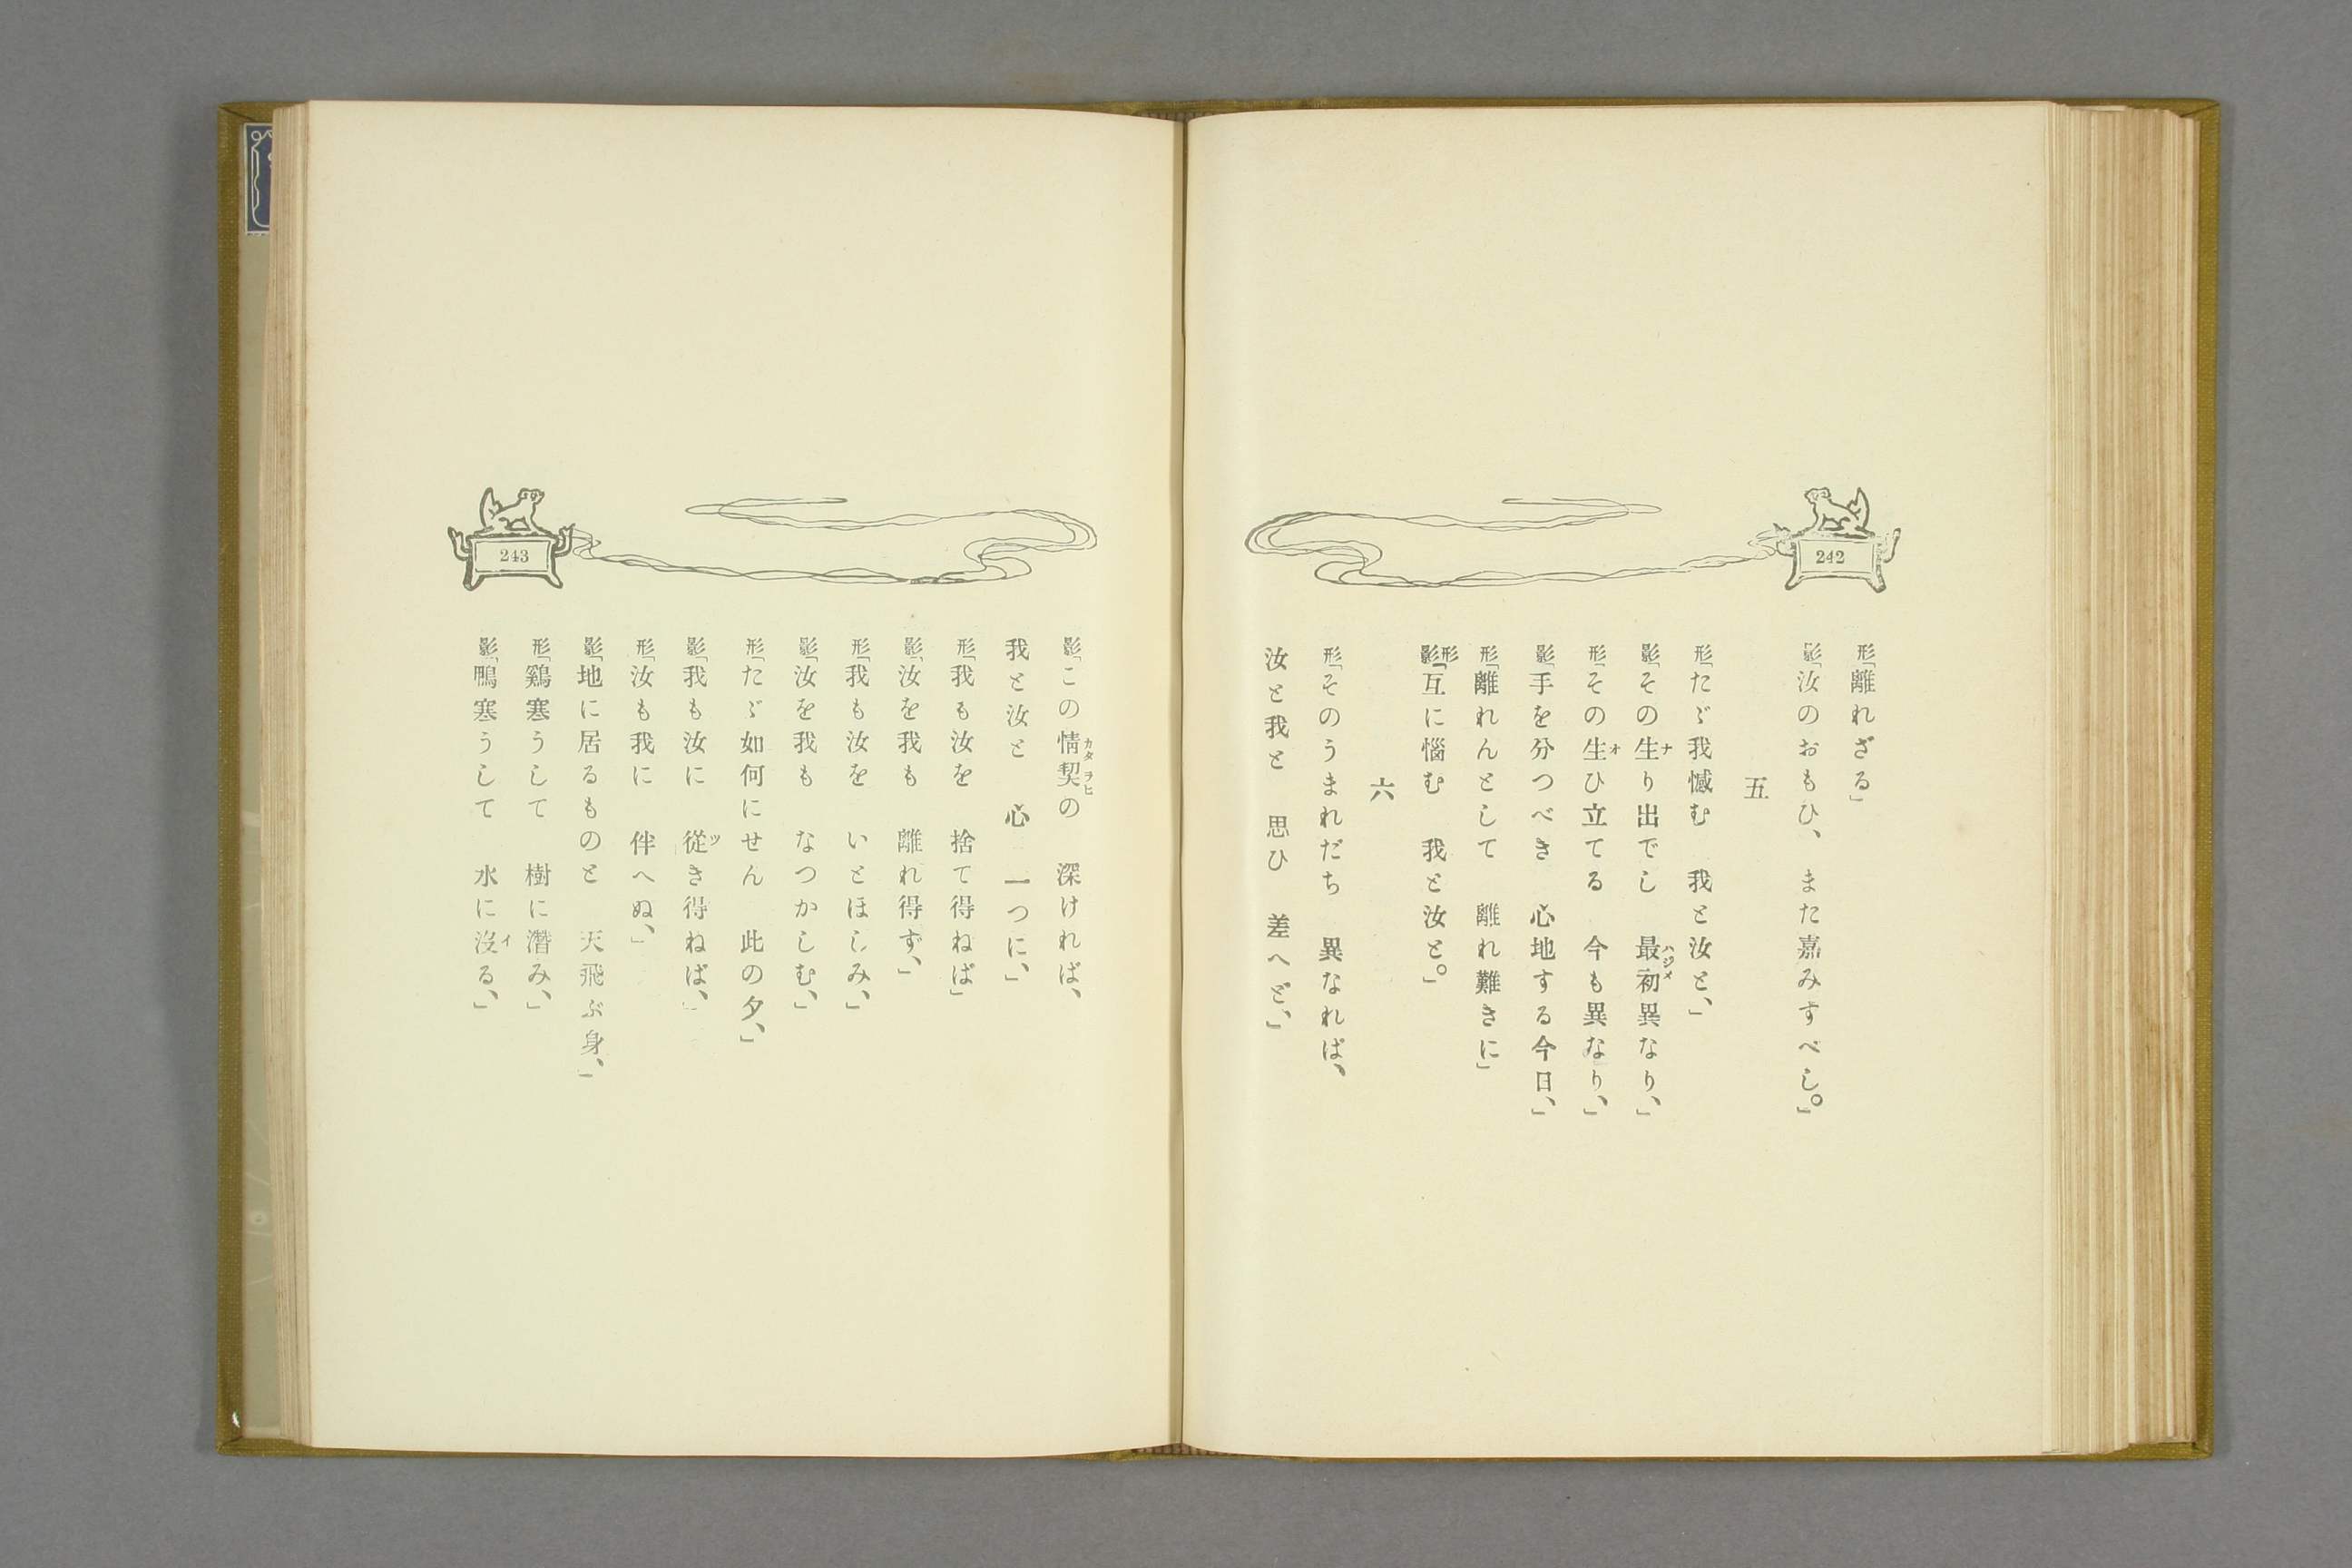 242
形「離れざる」
影「汝のおもひ、また嘉みすべし。」
五
形「たゞ我憾む　我と汝と、」
影「その生り出でし　最初異なり、」
形「その生ひ立てる　今も異なり、」
影「手を分つべき　心地する今日、」
形「離れんとして　離れ難きに」
形影「互に惱む　我と汝と。」
六
形「そのうまれだち　異なれば、
汝と我と　思ひ　差へど、」
243
影「この情契の　深ければ、
我と汝と　心　一つに、」
形「我も汝を　捨て得ねば」
影「汝を我も　離れ得ず、」
形「我も汝を　いとほしみ、」
影「汝を我も　なつかしむ、」
形「たゞ如何にせん　此の夕、」
影「我も汝に　從き得ねば、」
形「汝も我に　伴へぬ、」
影「地に居るものと　天飛ぶ身、」
形「鷄寒うして　樹に潛み、」
影「鴨寒うして　水に沒る、」